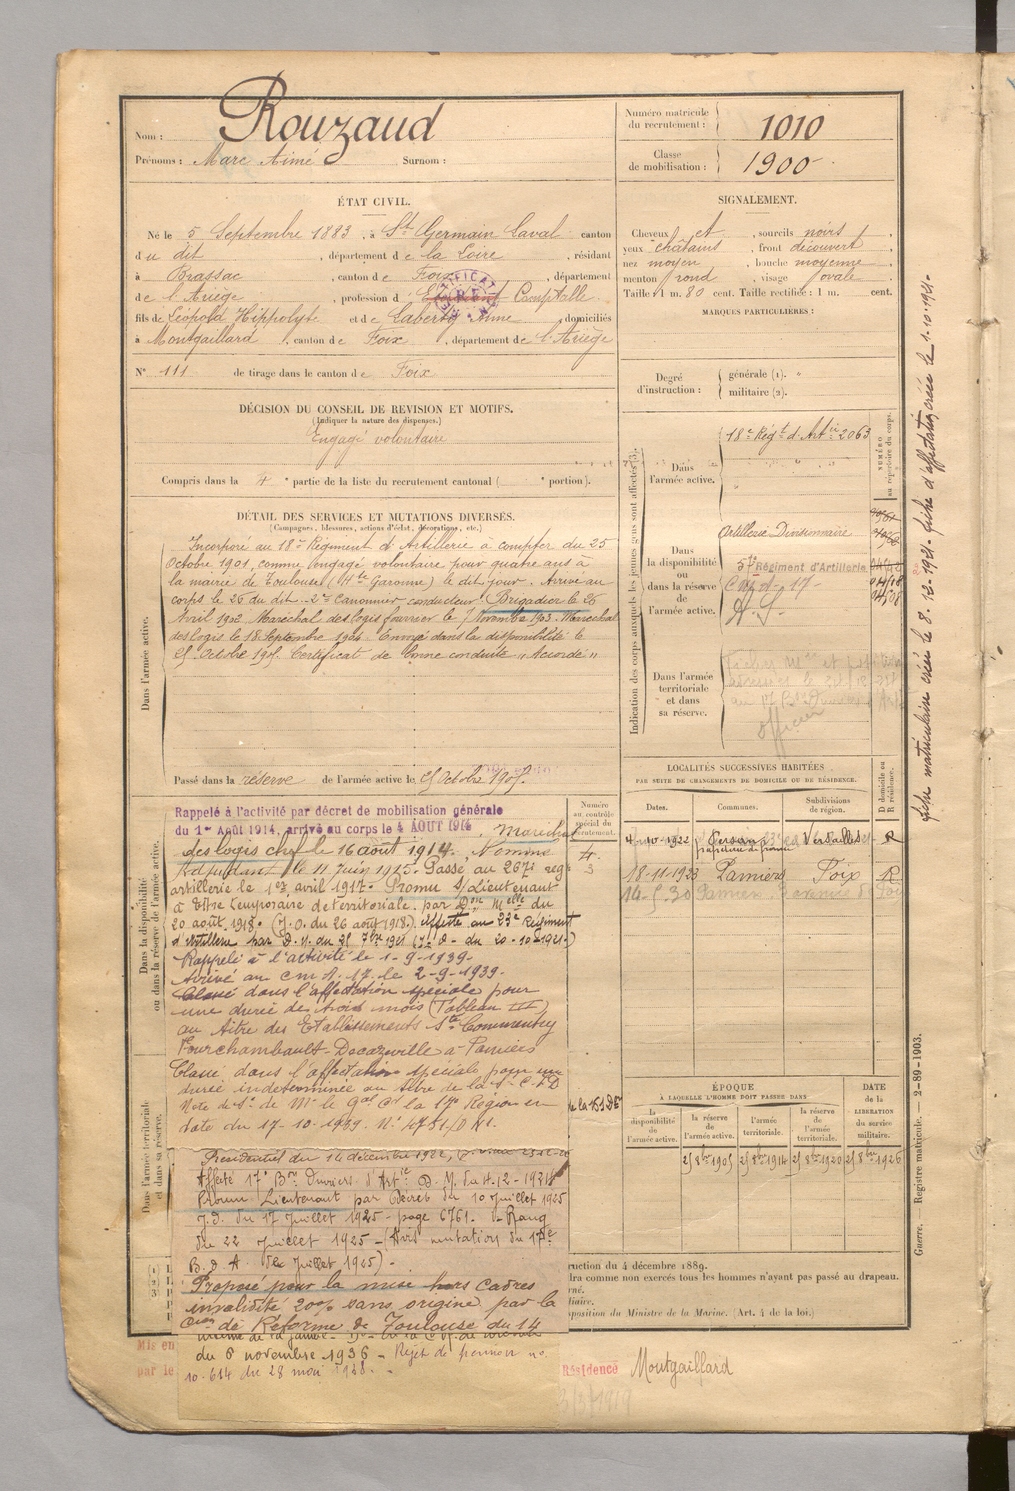 Nom : Rouzaud
Prénoms : Marc Aimé Surnom :
Numéro matricule du recrutement : 1010
Classe de mobilisation : 1900
ÉTAT CIVIL.
Né le 5 Septembre 1883, à St Germain Laval canton
du dit, département de la Loire, résidant
à Brassac, canton de Foix, département
de l'Ariège, profession d Comptable
fils de Léopold Hippolyte et de Anne domiciliés
à Montgaillard, canton de Foix, département de l'Ariège
SIGNALEMENT.
Cheveux et, sourcils noirs,
yeux châtains, front découvert
nez moyen, bouche moyenne
menton rond, visage ovale
Taille : 1 m. 80 cent. Taille rectifiée : 1 m. cent.
MARQUES PARTICULIÈRES :
N° 111 de tirage dans le canton de Foix
Degré d'instruction : générale (1). "
militaire (2).
DÉCISION DU CONSEIL DE REVISION ET MOTIFS.
(Indiquer la nature des dispenses.)
Engagé volontaire
Compris dans la 4e partie de la liste du recrutement cantonal ( e portion).
DÉTAIL DES SERVICES ET MUTATIONS DIVERSES.
(Campagnes, blessures, actions d'éclat, décorations, etc.)
Dans l'armée active.
Incorporé au 18e Régiment d'Artillerie à compter du 25
Octobre 1901, comme engagé volontaire pour quatre ans à
la mairie de Toulouse (Hte Garonne) le dit jour. Arrivé au
corps le 26 du dit. 2e Canonnier conducteur. Brigadier le 26
Avril 1902. Maréchal des logis fourrier le 7 Novembre 1903. Maréchal
des logis le 18 Septembre 1904. Envoyé dans la disponibilité le
25 Octobre 1905. Certificat de bonne conduite "Accordé"
Passé dans la réserve de l'armée active le 25 Octobre 1905.
Indication des corps auxquels les jeunes gens sont affectés (3).
NUMÉRO au répertoire du corps.
Dans l'armée active.
18e Régt d'Artie 2063
Dans la disponibilité ou dans la réserve de l'armée active.
Artillerie Divisionnaire
57e Régiment d'Artillerie
Dans l'armée territoriale et dans sa réserve.
officier
LOCALITÉS SUCCESSIVES HABITÉES
PAR SUITE DE CHANGEMENTS DE DOMICILE OU DE RÉSIDENCE.
Dates. Communes. Subdivisions de région. D domicile ou R résidence.
4-10-1922 Persan Versailles R
18-11-1923 Pamiers Foix R
14-5-30 Pamiers
Dans la disponibilité ou dans la réserve de l'armée active.
Numéro au contrôle spécial du recrutement.
Rappelé à l'activité par décret de mobilisation générale
du 1er Août 1914, arrivé au corps le 4 AOUT 1914. Maréchal
des logis chef le 16 août 1914. Nommé
Adjudant le 11 juin 1915. Passé au 267e rég
artillerie le 1er avril 1917. Promu S/Lieutenant
à titre temporaire de territoriale par Don Melle du
20 août 1918. (J.O. du 26 août 1918.) affecté au 23e Régiment
d'Artillerie par D.M. du 25 7bre 1921 (J.O. du 20-10-1921)
Rappelé à l'activité le 1-9-1939.
Arrivé au C.M.A. 17 le 2-9-1939.
Classé dans l'affectation spéciale pour
une durée de trois mois (Tableau III)
au titre des Etablissements Sté Commentry
Fourchambault-Decazeville à Pamiers
Classé dans l'affectation spéciale pour une
durée indéterminée au titre de la Sté C.F.D
Note de Sce de Mr le Gal Ct la 17e Région en
date du 17-10-1939. N°
Dans l'armée territoriale et dans sa réserve.
Présidentiel du 14 décembre 1922,
Affecté 17e Bon Ouvriers d'Artie D.M. du
Promu Lieutenant par décret du 10 juillet 1925
J.O. du 17 juillet 1925 - page 6761.
du 22 juillet 1925 - (Avis mutation du 17e
B.O.A. juillet 1925) -
Proposé pour la mise hors cadres
invalidité 20% sans origine par la
Con de Réforme de Toulouse du 14
du 6 novembre 1936 - Rejet de pension no
10.614 du 28 mai
ÉPOQUE
À LAQUELLE L'HOMME DOIT PASSER DANS
la disponibilité de l'armée active. la réserve de l'armée active. l'armée territoriale. la réserve de l'armée territoriale.
DATE de la LIBÉRATION du service militaire.
25 8bre 1905 25 8bre 1914 25 8bre 1920 25 8bre 1926
ruction du 4 décembre 1889.
dra comme non exercés tous les hommes n'ayant pas passé au drapeau.
rné.
liaire.
position du Ministre de la Marine. (Art. 4 de la loi.)
Mis en
par le
Résidence Montgaillard
fiche matriculaire créée le 8.12.1921. fiche d'affectation créée le 1.10.1921.
Guerre. — Registre matricule. — 2-89-1903.